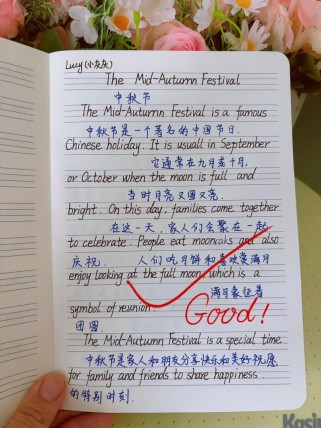 Lucy(小灰灰)
The Mid-Autumn Festival
中秋节
The Mid-Autumn Festival is a famous
中秋节是一个著名的中国节日.
Chinese holiday. It is usuall in September
它通常在九月或十月,
or October when the moon is full and
当时月亮又圆又亮.
bright. On this day, families come together
在这一天,家人们会聚在一起
to celebrate. People eat mooncaks and also
庆祝. 人们吃月饼和喜欢赏满月
enjoy looking at the full moon, which is a
满月象征着
symbol of reunion.
团圆.
Good!
The Mid-Autumn Festival is a special time
中秋节是家人和朋友分享快乐和美好祝愿
for family and friends to share happiness.
的特别时刻.